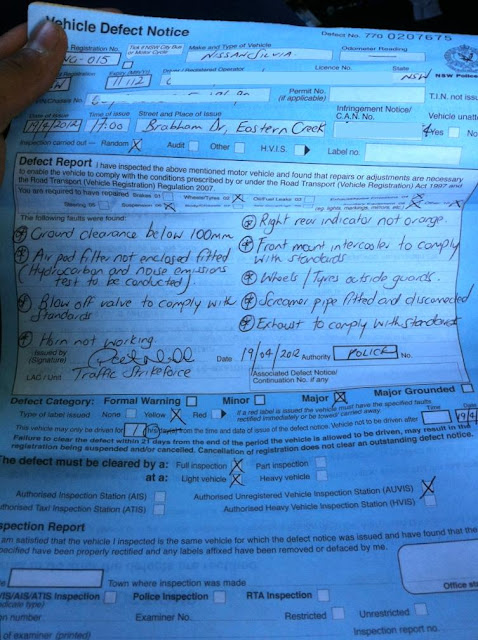 Vehicle Defect Notice
Defect No. 770 0207675
Registration No.
Tick if NSW City Bus or Motor Cycle
Make and Type of Vehicle
Odometer Reading
NG-015
NISSAN SILVIA
NSW Police
Registration
Expiry (MM/YY)
Driver / Registered Operator
Licence No.
State
11/12
NSW
VIN/Chassis No.
Permit No. (if applicable)
T.I.N. not iss
Date of Issue
Time of Issue
Street and Place of Issue
Infringement Notice/ C.A.N. No.
Vehicle unatt
19/4/2012
17:00
Brabham Dr, Eastern Creek
Yes No
Inspection carried out — Random X Audit Other H.V.I.S. Label no.
Defect Report I have inspected the above mentioned motor vehicle and found that repairs or adjustments are necessary
to enable the vehicle to comply with the conditions prescribed by or under the Road Transport (Vehicle Registration) Act 1997 and
the Road Transport (Vehicle Registration) Regulation 2007.
You are required to have repaired Brakes 01 Wheels/Tyres 02 X Oil/Fuel Leaks 03
Steering 05
The following faults were found:
* Ground clearance below 100mm
* Air pod filter not enclosed fitted
(Hydrocarbon and noise emissions
test to be conducted)
* Blow off valve to comply with
Standards
* Horn not working.
* Right rear indicator not orange.
* Front mount intercooler to comply
with standards
* Wheels / Tyres outside guards.
* Screamer pipe fitted and disconnected
* Exhaust to comply with standards
Issued by (Signature)
Date 19/04/2012 Authority POLICE No.
LAC / Unit Traffic Strikeforce
Associated Defect Notice/ Continuation No. if any
Defect Category: Formal Warning Minor Major X Major Grounded
Type of label issued None Yellow X Red
If a red label is issued the vehicle must have the specified faults rectified immediately or be towed/ carried away.
This vehicle may only be driven for hrs/day(s) from the time and date of issue of the defect notice. Vehicle not to be driven after
Time
Date
19/4
Failure to clear the defect within 21 days from the end of the period the vehicle is allowed to be driven, may result in the
registration being suspended and/or cancelled. Cancellation of registration does not clear an outstanding defect notice.
The defect must be cleared by a: Full inspection X Part inspection
at a: Light vehicle X Heavy vehicle
Authorised Inspection Station (AIS)
Authorised Unregistered Vehicle Inspection Station (AUVIS) X
Authorised Taxi Inspection Station (ATIS)
Authorised Heavy Vehicle Inspection Station (HVIS)
Inspection Report
I am satisfied that the vehicle I inspected is the same vehicle for which the defect notice was issued and have found that the
specified have been properly rectified and any labels affixed have been removed or defaced by me.
Town where inspection was made
Office sta
VIS/AIS/ATIS Inspection Police Inspection RTA Inspection
(indicate type)
on number:
Examiner No.
Restricted Unrestricted
of examiner (printed)
Inspection report no.